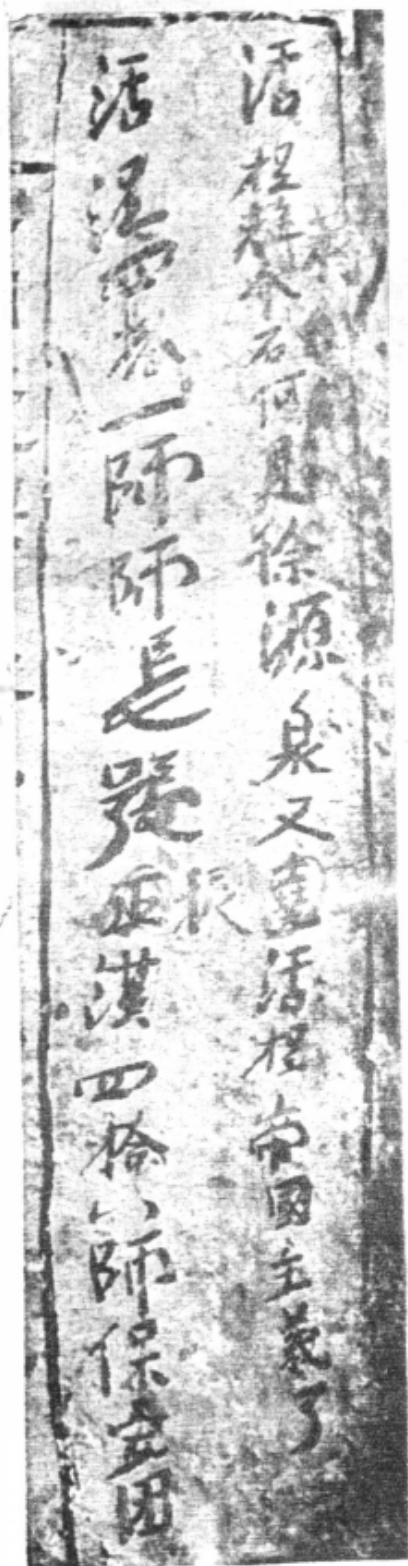 活捉蔣介石何是徐源泉又活捉帝國主義了
活捉四拾一師師長張振漢四拾八師保安团